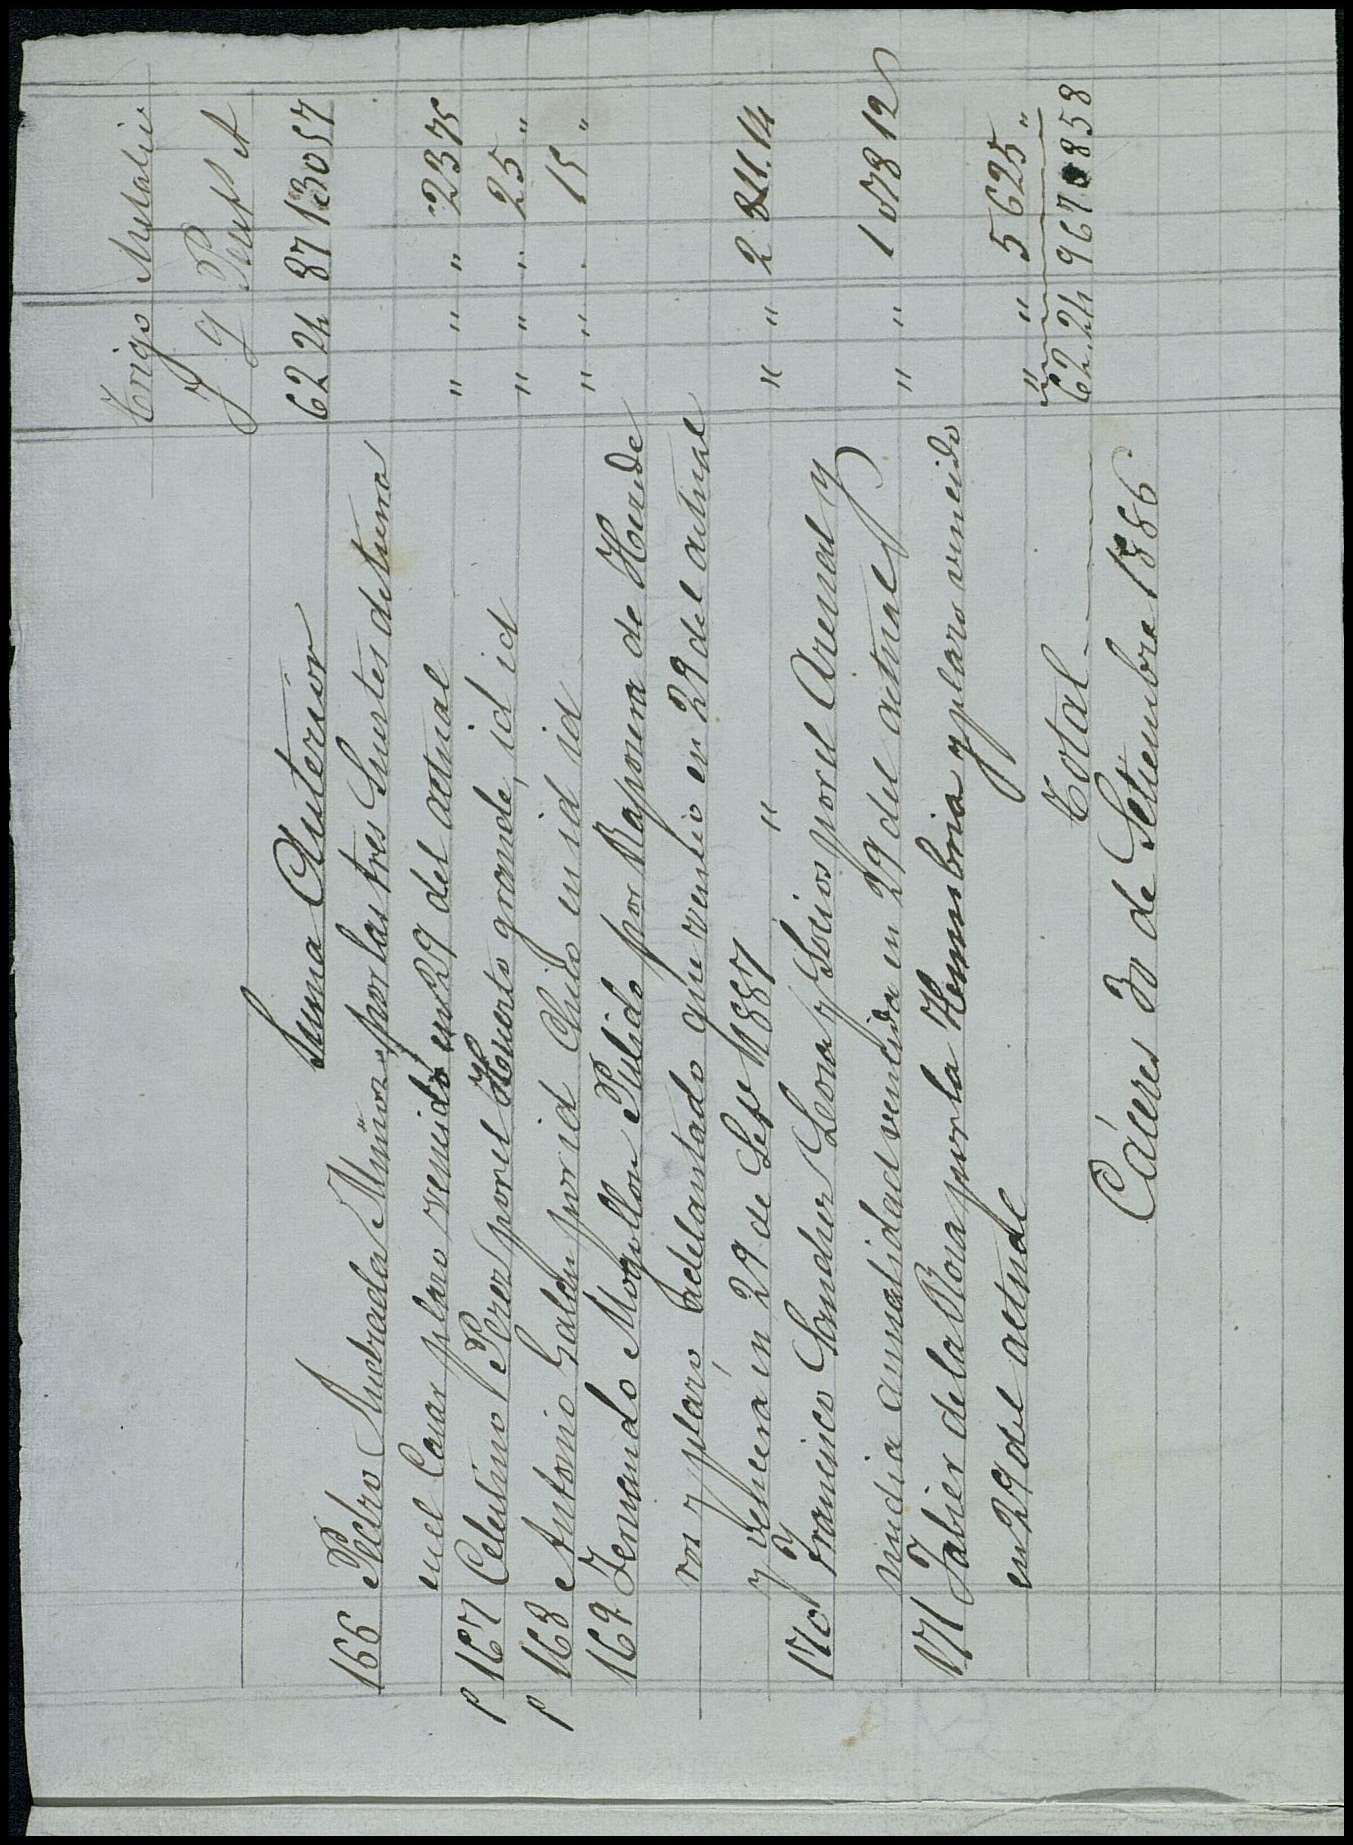 Trigo Metalico
F q Pesetas Ct
Suma Anterior 62 24 87 130 57
166 Pedro Andrada Muñoz por las tres Suertes de tierra
en el Casar plazo vencido en 29 del actual " " " 23 75
P 167 Celestino Perez por el Huerto grande, id id " " " 25 "
P 168 Antonio Galan por id Chico en id id " " " 15 "
169 Fernando Mogollon Pulido por Raposera de Heride
ros y plazo adelantado que vencio en 29 del actual
y vencera en 29 de Sepe 1887 " " " 2 811.14
170 Francisco Sanchez Leona y Socios por el Arenal y
media anualidad vencida en 29 del actual " " 1 078 12
171 Jabier de la Rosa por la Hermosina y plazo vencido
en 29 del actual " " 5 625 "
Total 62 24 967 858
Cáceres 30 de Setiembre 1886